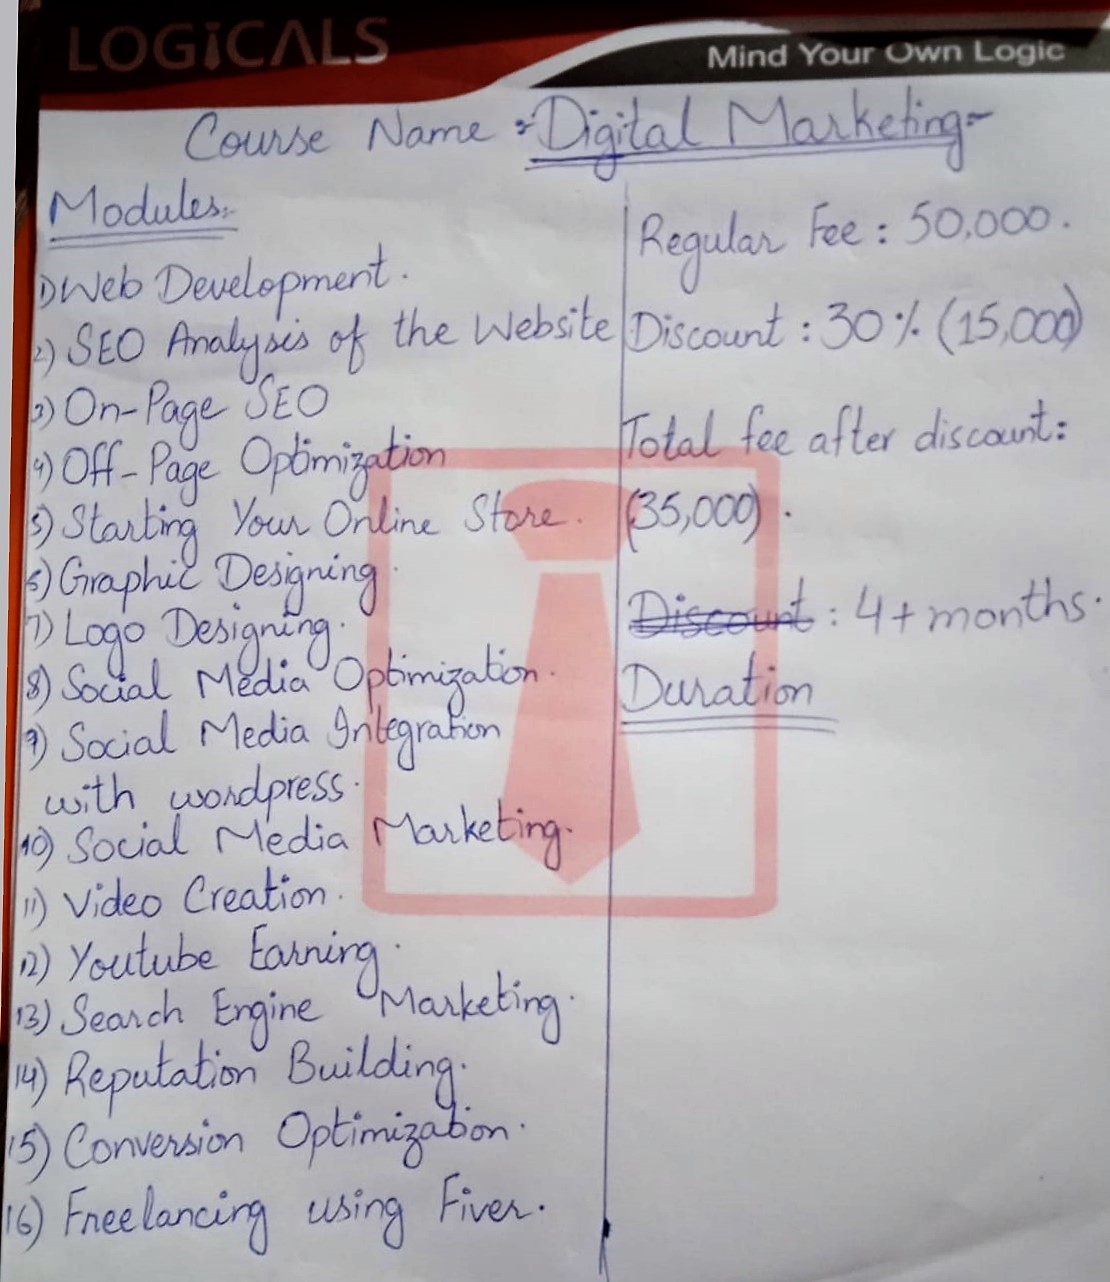 LOGiCALS
Mind Your Own Logic
Course Name :- Digital Marketing:-
Modules:-
1) Web Development.
2) SEO Analysis of the Website
3) On-Page SEO
4) Off-Page Optimization
5) Starting Your Online Store.
6) Graphic Designing.
7) Logo Designing.
8) Social Media Optimization.
9) Social Media Integration
with wordpress.
10) Social Media Marketing.
11) Video Creation.
12) Youtube Earning.
13) Search Engine Marketing.
14) Reputation Building.
15) Conversion Optimization.
16) Freelancing using Fiver.
Regular Fee : 50,000.
Discount : 30% (15,000)
Total fee after discount:
(35,000).
Discount : 4+ months.
Duration